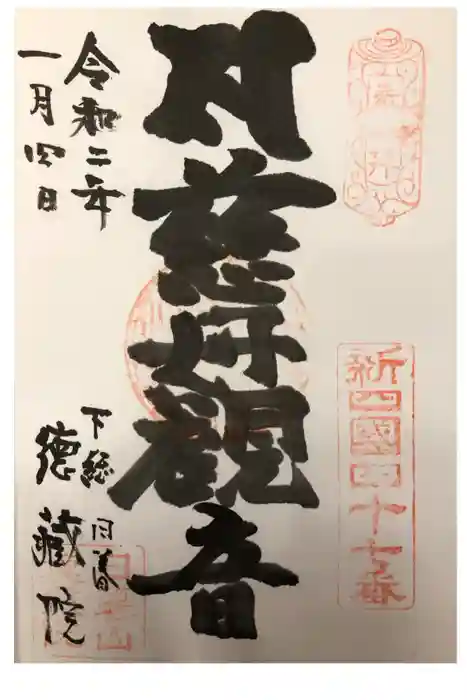 新四國四十七番
慈母觀音
令和二年
一月四日
下総 日暮
徳藏院